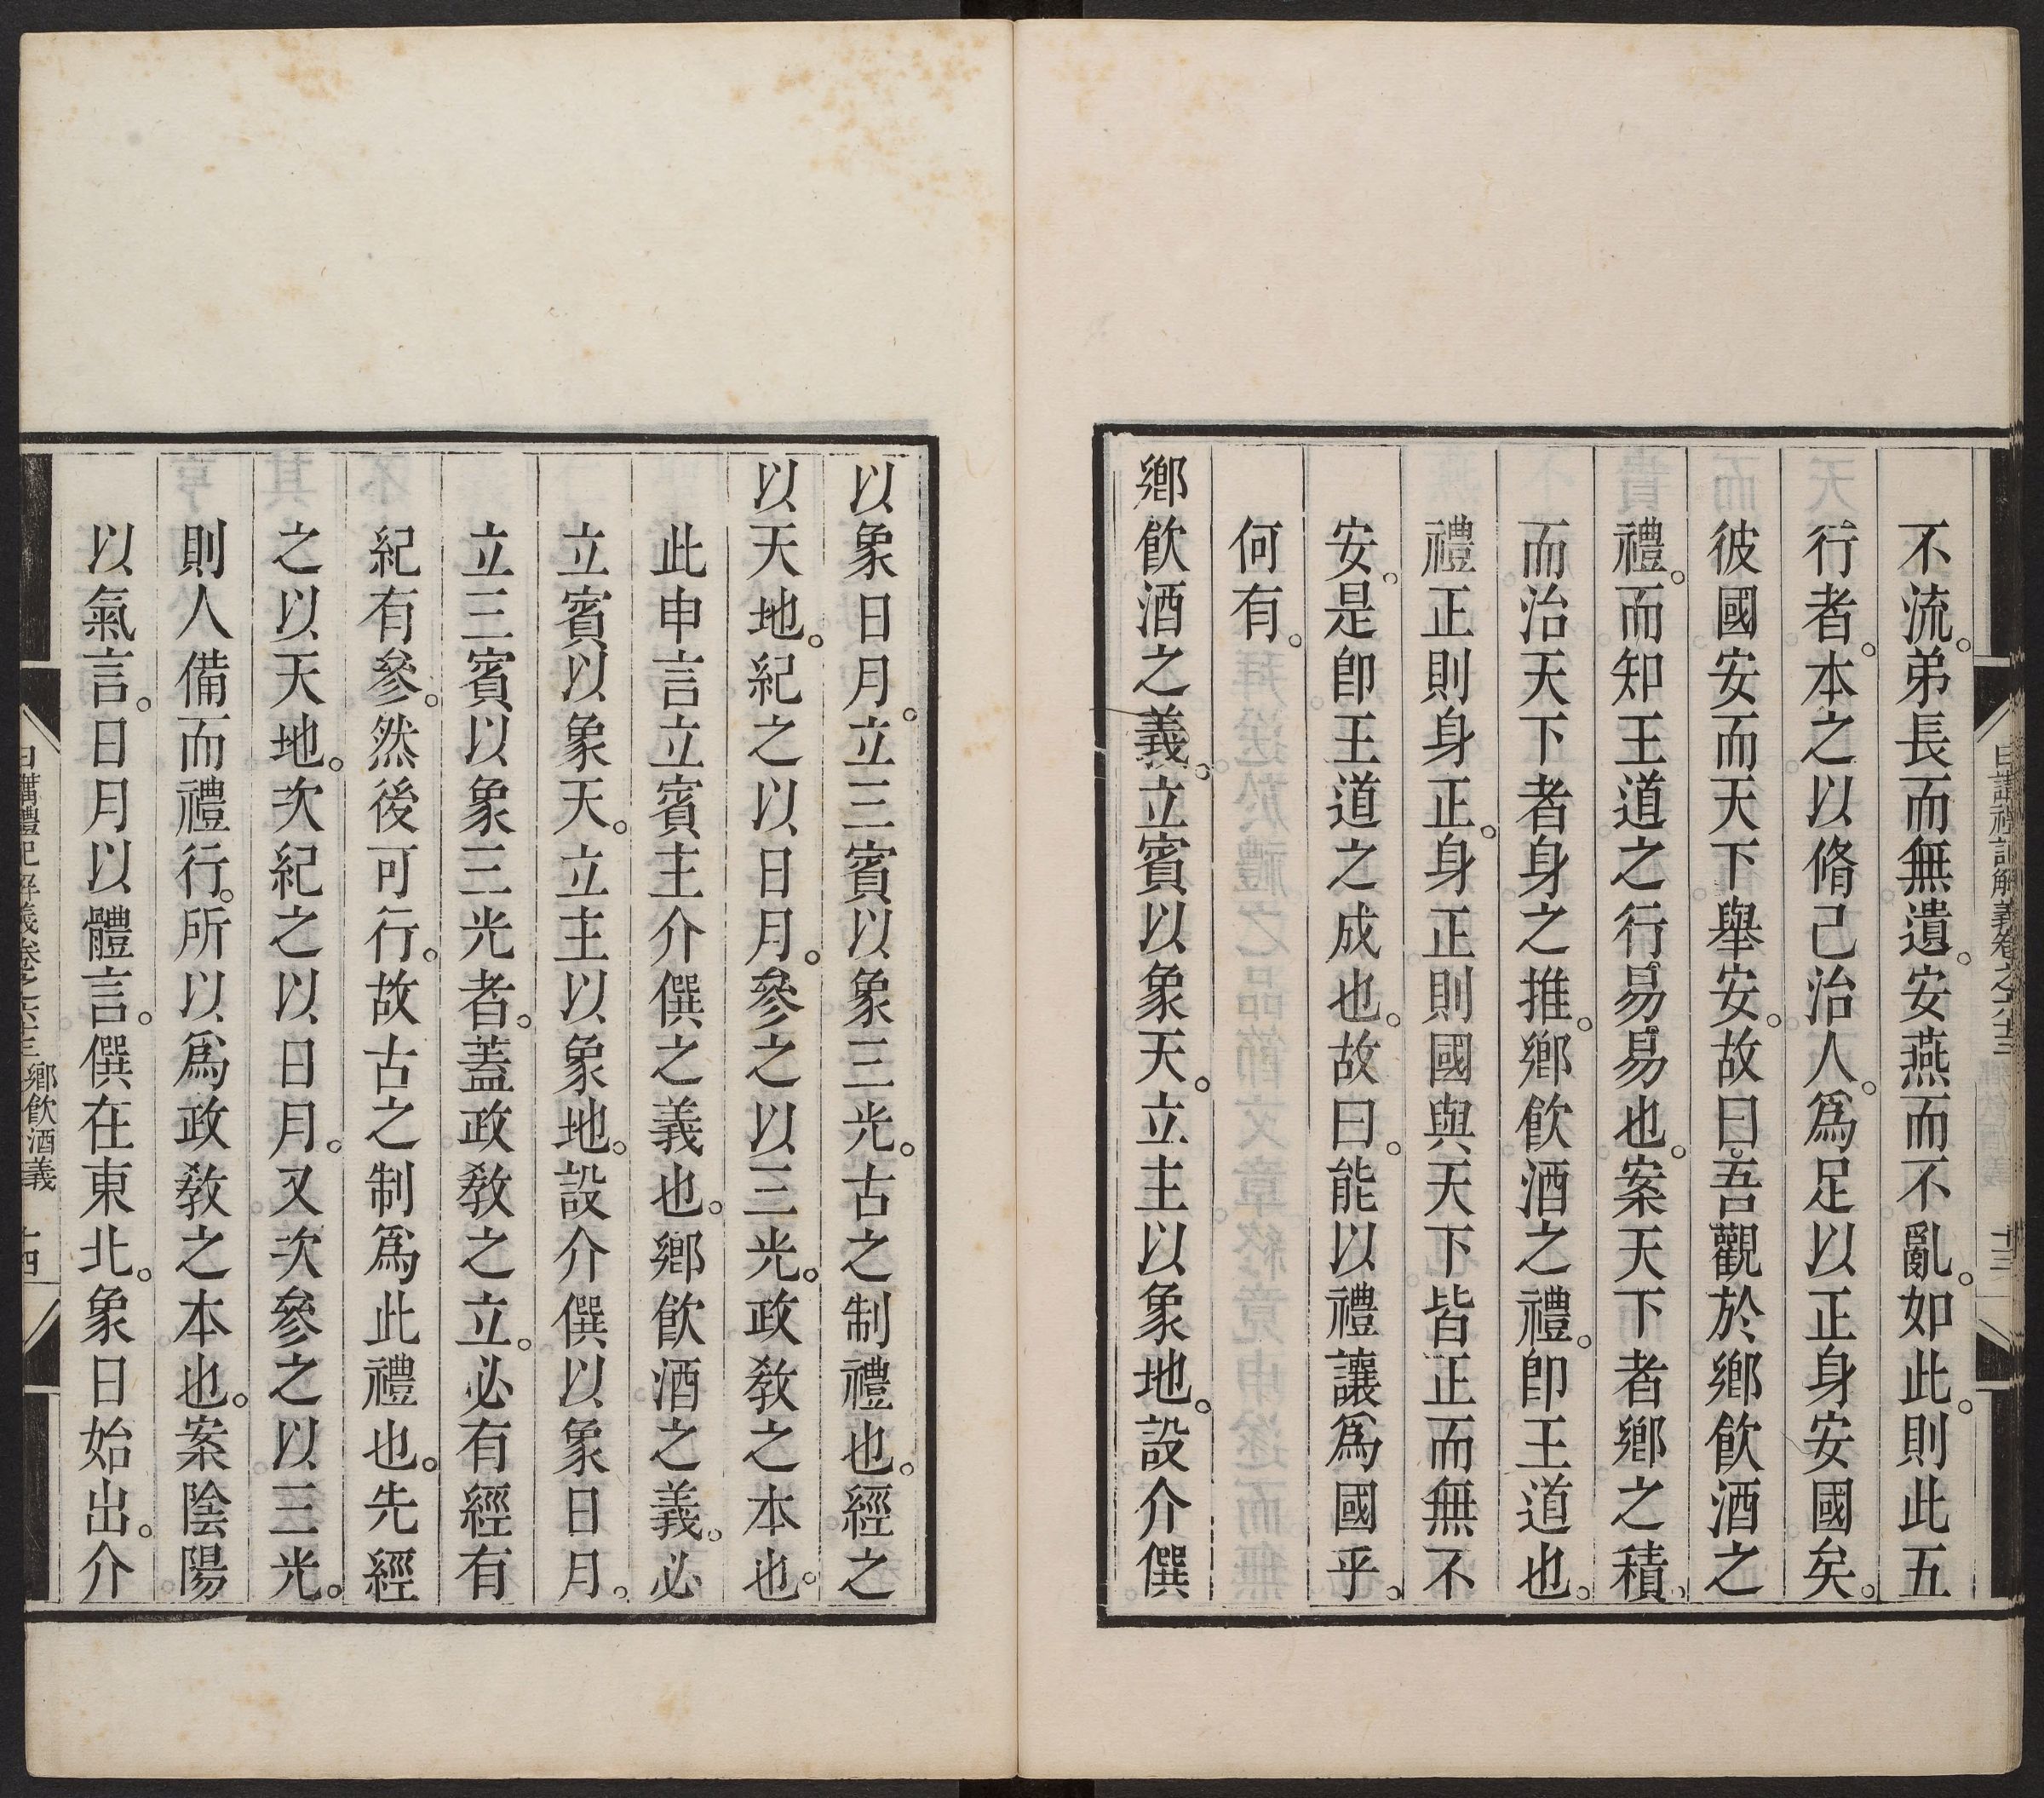 日講禮記解義卷之六十三
十三
不流。弟長而無遺。安燕而不亂。如此。則此五
行者。本之以脩己治人。爲足以正身安國矣。
彼國安而天下舉安。故曰。吾觀於鄉飮酒之
禮。而知王道之行。易易也。案天下者鄉之積。
而治天下者身之推。鄉飮酒之禮。卽王道也。
禮正則身正。身正則國與天下皆正而無不
安。是卽王道之成也。故曰。能以禮讓爲國乎。
何有。
鄉飮酒之義。立賓以象天。立主以象地。設介僎
以象日月。立三賓以象三光。古之制禮也。經之
以天地。紀之以日月。參之以三光。政敎之本也。
此申言立賓主介僎之義也。鄉飮酒之義。必
立賓以象天。立主以象地。設介僎以象日月。
立三賓以象三光者。蓋政敎之立。必有經有
紀有參。然後可行。故古之制爲此禮也。先經
之以天地。次紀之以日月。又次參之以三光。
則人備而禮行。所以爲政敎之本也。案陰陽
以氣言。日月以體言。僎在東北。象日始出。介
日講禮記解義卷之六十三 鄉飮酒義
十四